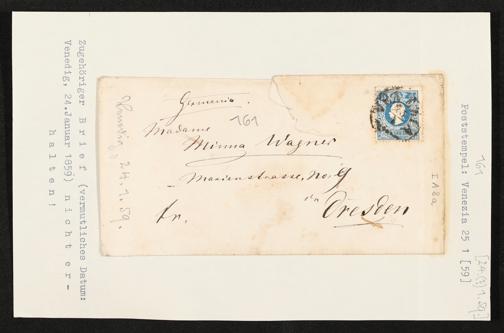 Zugehöriger Brief (vermutliches Datum:
Venedig, 24.Januar 1859) nicht er-
halten!
Venedig 24.1.59.
Germania.
161
Madame
Minna Wagner
Marienstrasse, No: 9
in
Dresden
fr.
I A 8a
Poststempel: Venezia 25 1 [59]
161
[24.(?)1.59.]